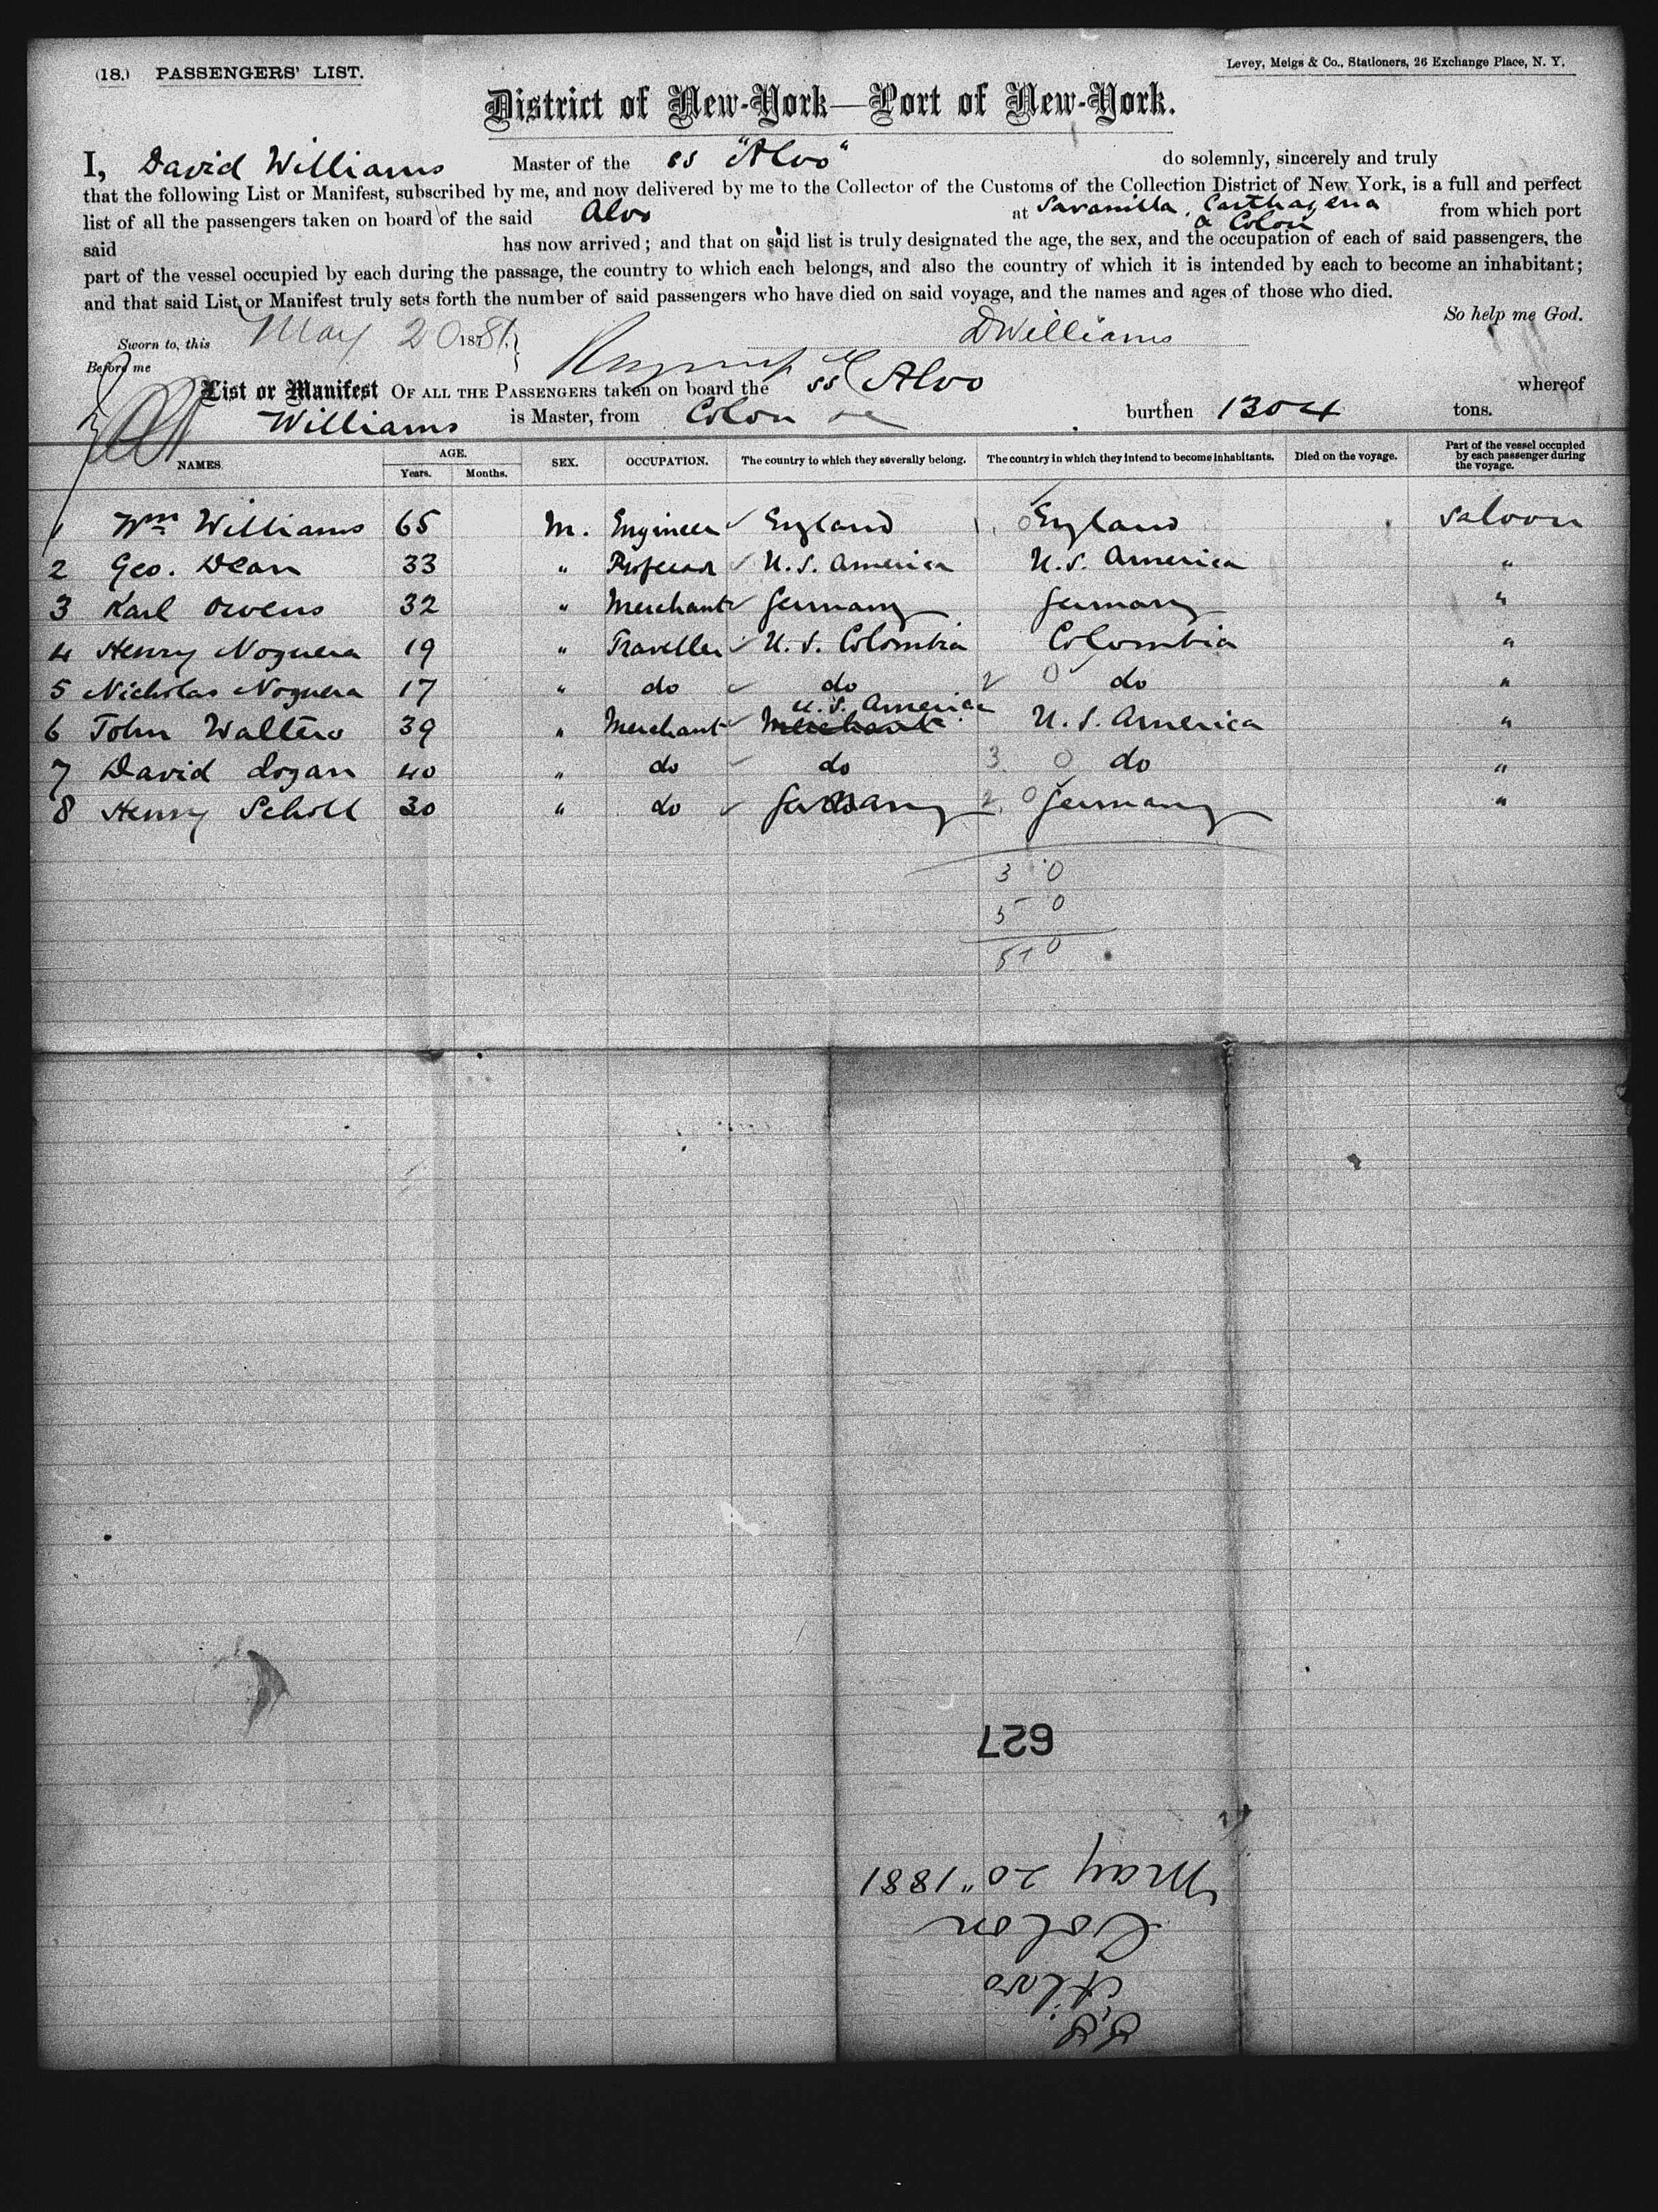 (18.) PASSENGERS' LIST.
Levey, Meigs & Co., Stationers, 26 Exchange Place, N. Y.
District of New-York—Port of New-York.
I, David Williams Master of the ss "Alvo" do solemnly, sincerely and truly
that the following List or Manifest, subscribed by me, and now delivered by me to the Collector of the Customs of the Collection District of New York, is a full and perfect
list of all the passengers taken on board of the said Alvo at Savanilla, Carthagena & Colon from which port
said has now arrived; and that on said list is truly designated the age, the sex, and the occupation of each of said passengers, the
part of the vessel occupied by each during the passage, the country to which each belongs, and also the country of which it is intended by each to become an inhabitant;
and that said List, or Manifest truly sets forth the number of said passengers who have died on said voyage, and the names and ages of those who died.
So help me God.
Sworn to, this May 20 1881. DWilliams
Before me
List or Manifest OF ALL THE PASSENGERS taken on board the ss Alvo whereof
Williams is Master, from Colon burthen 1304 tons.
NAMES. AGE. Years. Months. SEX. OCCUPATION. The country to which they severally belong. The country in which they intend to become inhabitants. Died on the voyage. Part of the vessel occupied by each passenger during the voyage.
1 Wm Williams 65 M. Engineer England 1. 0 England Saloon
2 Geo. Dean 33 " Professor U.S. America U.S. America "
3 Karl Owens 32 " Merchant Germany Germany "
4 Henry Noguera 19 " Traveller U.S. Colombia Colombia "
5 Nicholas Noguera 17 " do do 2 0 do "
6 John Walters 39 " Merchant Merchant U.S. America U.S. America "
7 David Logan 40 " do do 3. 0 do "
8 Henry Scholl 30 " do Germany 2. 0 Germany "
3 0
5 0
0
627
May 20" 1881
Colon
Alvo
SS